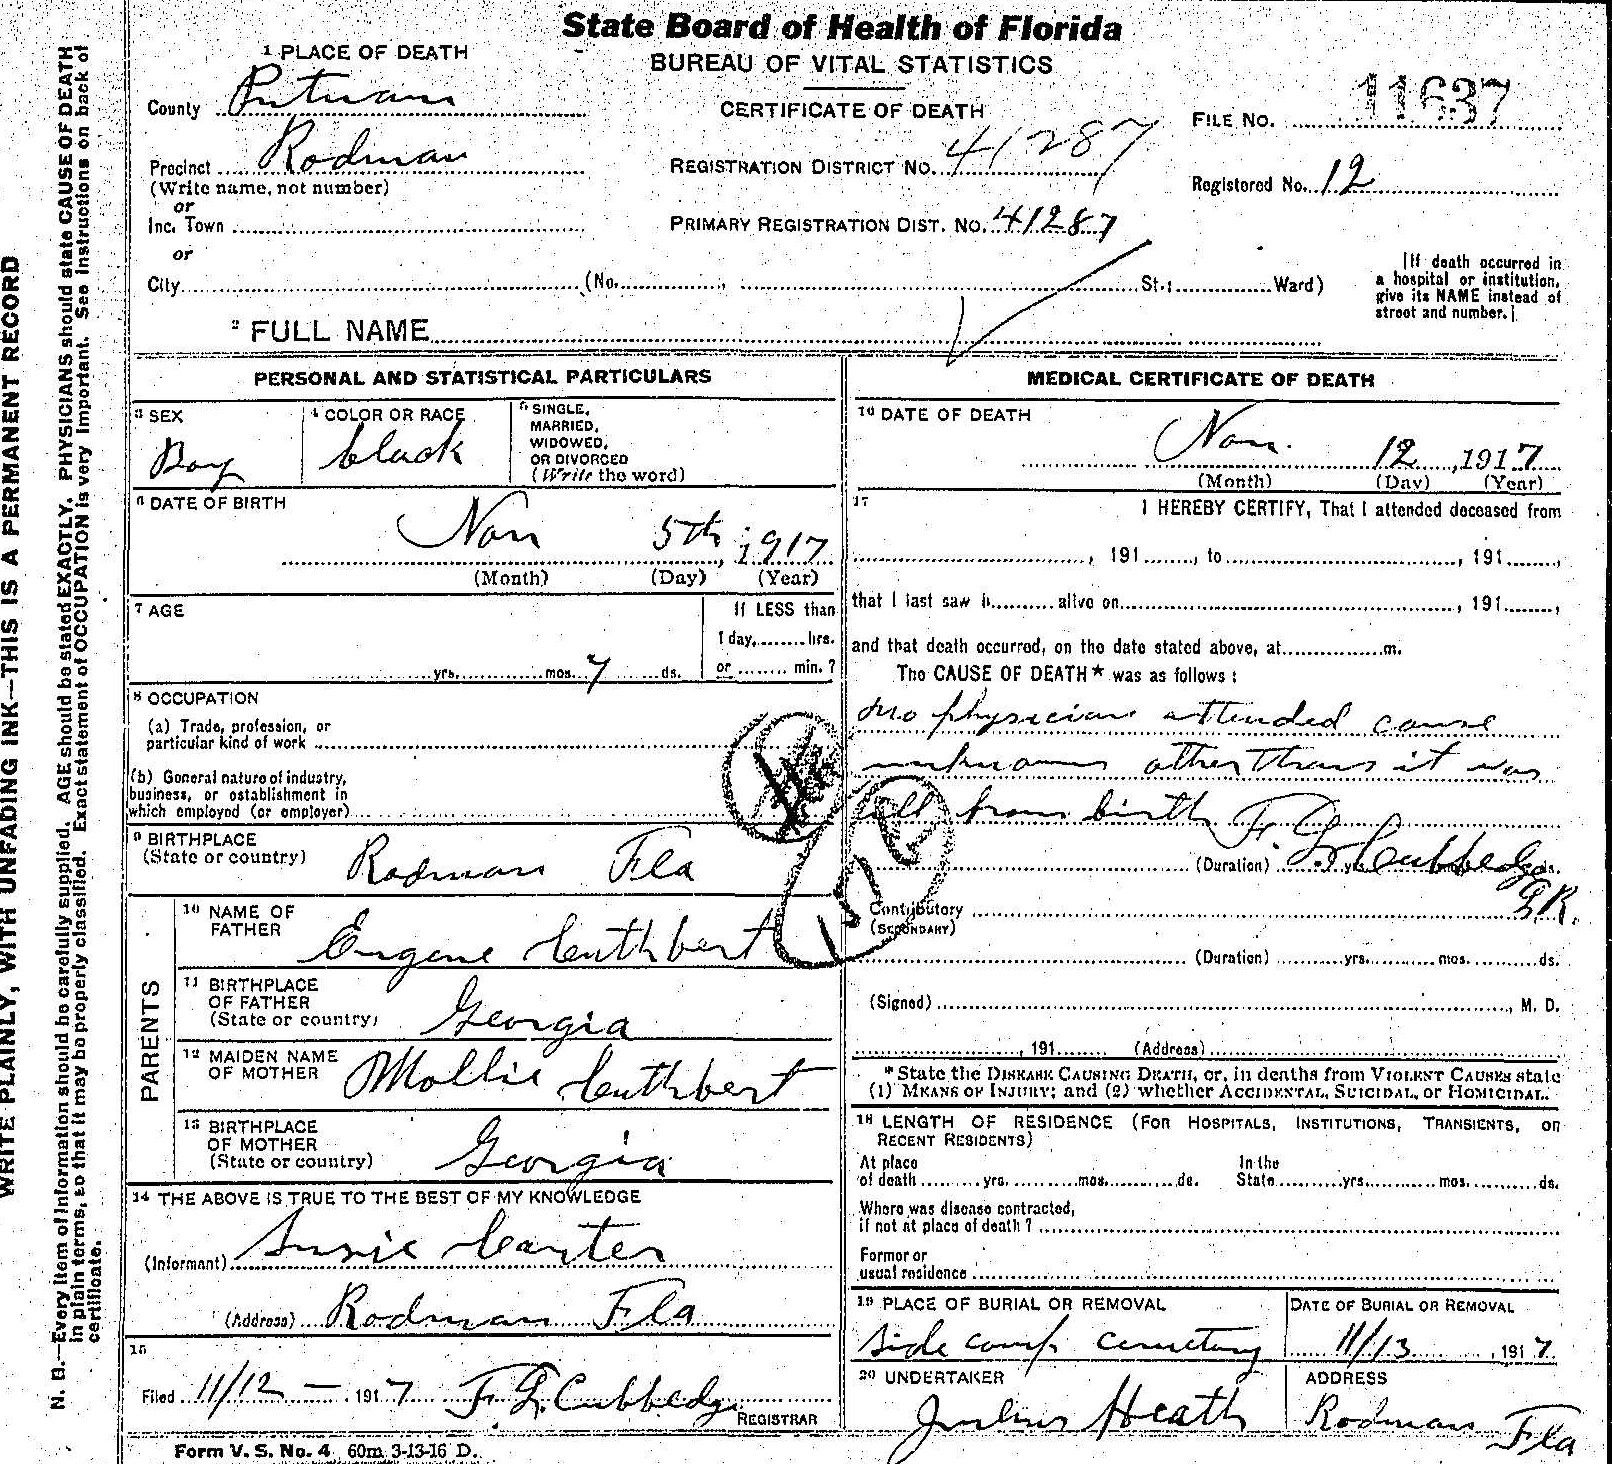 State Board of Health of Florida
BUREAU OF VITAL STATISTICS
CERTIFICATE OF DEATH
1 PLACE OF DEATH
County Putnam
Precinct Rodman
(Write name, not number)
or
Inc. Town
or
City (No. , St.; Ward)
REGISTRATION DISTRICT No. 41287
PRIMARY REGISTRATION DIST. No. 41287
FILE No. 11637
Registered No. 12
[If death occurred in
a hospital or institution,
give its NAME instead of
street and number.]
2 FULL NAME
PERSONAL AND STATISTICAL PARTICULARS
3 SEX
Boy
4 COLOR OR RACE
black
5 SINGLE,
MARRIED,
WIDOWED,
OR DIVORCED
(Write the word)
6 DATE OF BIRTH
Nov 5th, 1917
(Month) (Day) (Year)
7 AGE
yrs. mos. 7 ds.
If LESS than
1 day, hrs.
or min. ?
8 OCCUPATION
(a) Trade, profession, or
particular kind of work
(b) General nature of industry,
business, or establishment in
which employed (or employer)
9 BIRTHPLACE
(State or country) Rodman Fla
PARENTS
10 NAME OF
FATHER Eugene Cuthbert
11 BIRTHPLACE
OF FATHER
(State or country) Georgia
12 MAIDEN NAME
OF MOTHER Mollie Cuthbert
13 BIRTHPLACE
OF MOTHER
(State or country) Georgia
14 THE ABOVE IS TRUE TO THE BEST OF MY KNOWLEDGE
(Informant) Susie Carter
(Address) Rodman Fla
15
Filed 11/12 - 1917 F. G. Cubbedge
REGISTRAR
Form V. S. No. 4 60m 3-13-16 D.
MEDICAL CERTIFICATE OF DEATH
16 DATE OF DEATH
Nov. 12, 1917
(Month) (Day) (Year)
17 I HEREBY CERTIFY, That I attended deceased from
, 191 , to , 191 ,
that I last saw h alive on , 191 ,
and that death occurred, on the date stated above, at m.
The CAUSE OF DEATH* was as follows:
no physician attended cause
unknown other than it was
ill from birth F. G. Cubbedge
(Duration) yrs. ds.
LR.
Contributory
(SECONDARY)
(Duration) yrs. mos. ds.
(Signed) , M. D.
, 191 (Address)
*State the DISEASE CAUSING DEATH, or, in deaths from VIOLENT CAUSES state
(1) MEANS OF INJURY; and (2) whether ACCIDENTAL, SUICIDAL, or HOMICIDAL.
18 LENGTH OF RESIDENCE (FOR HOSPITALS, INSTITUTIONS, TRANSIENTS, OR
RECENT RESIDENTS)
At place In the
of death yrs. mos. ds. State yrs. mos. ds.
Where was disease contracted,
if not at place of death ?
Former or
usual residence
19 PLACE OF BURIAL OR REMOVAL
side camp cemetery
DATE OF BURIAL OR REMOVAL
11/13, 1917
20 UNDERTAKER
Julius Heath
ADDRESS
Rodman Fla
WRITE PLAINLY, WITH UNFADING INK—THIS IS A PERMANENT RECORD
N. B.—Every item of information should be carefully supplied. AGE should be stated EXACTLY. PHYSICIANS should state CAUSE OF DEATH
in plain terms, so that it may be properly classified. Exact statement of OCCUPATION is very important. See instructions on back of
certificate.